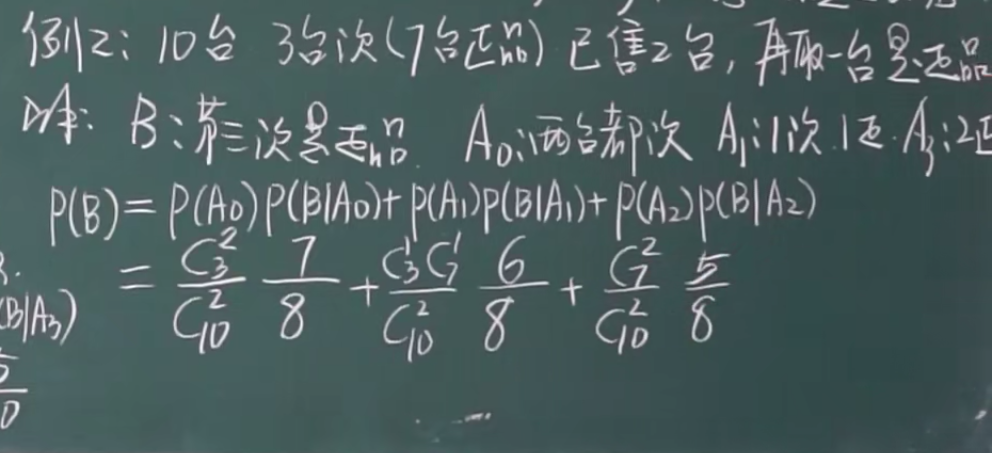 例2: 10台 3台次(7台正品) 已售2台, 再取一台是正品
解: B:第三次是正品. A₀:两台都次 A₁:1次.1正. A₃:2正
P(B)= P(A₀)P(B|A₀)+P(A₁)P(B|A₁)+P(A₂)P(B|A₂)
= C₃²/C₁₀² 7/8 + C₃¹C₇¹/C₁₀² 6/8 + C₇²/C₁₀² 5/8
(B|A₃)